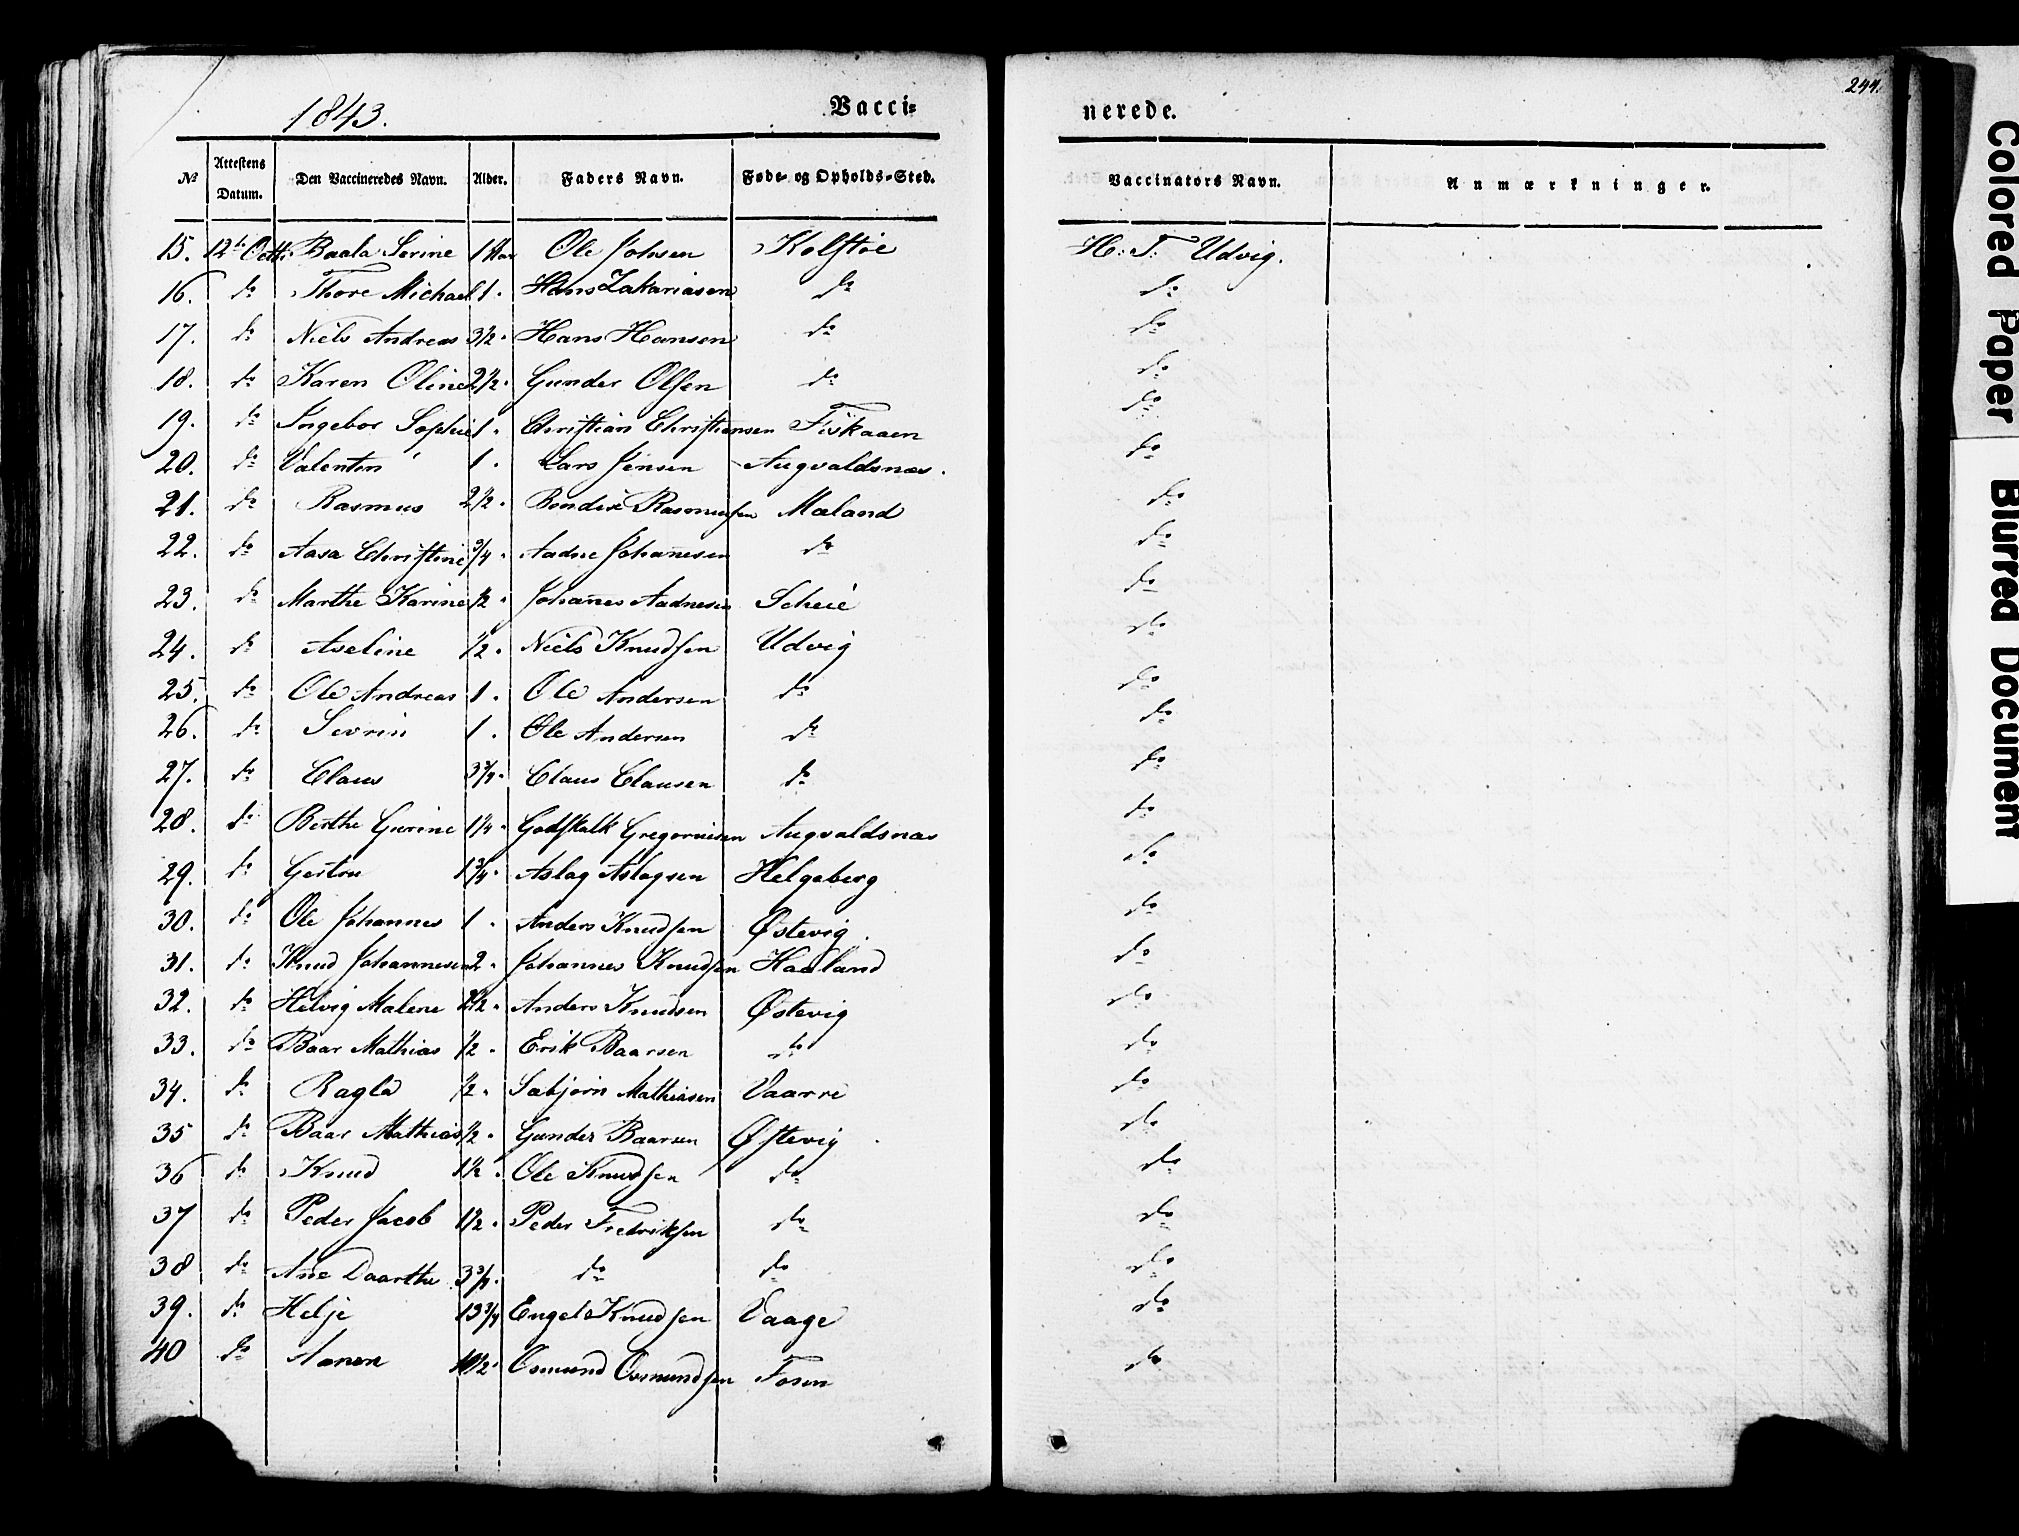 1843. Vacci- nerede. 244.
No Attestens Datum. Den Vaccineredes Navn. Alder. Faders Navn. Føde- og Opholds-Sted. Vaccinators Navn. Anmærkninger.
15. 12te Octbr Baala Serine 1 Aar Ole Johsen Kolstøe H: T: Udvig.
16. do Thore Michael 1. Hans Zakariasen do do
17. do Niels Andreas 3½. Hans Hansen do do
18. do Karen Oline 2½. Gunder Olsen do do
19. do Ingebor Sophie 1. Christian Christiansen Fiskaaen do
20. do Valentin 1. Lars Jensen Augvaldsnæs. do
21. do Rasmus 2½. Bendix Rasmussen Mæland do
22. do Aasa Christine ¾. Aadne Johanesen do do
23. do Marthe Karine ½. Johannes Aadnesen Scheie do
24. do Aseline ½. Niels Knudsen Udvig do
25. do Ole Andreas 1. Ole Andersen do do
26. do Sevrin 1. Ole Andersen do do
27. do Claus 3¾. Claus Clausen do do
28. do Berthe Gurine 1¼. Godskalk Gregoriusen Augvaldsnæs do
29. do Gertru 1¾. Aslag Aslagsen Helgaberg do
30. do Ole Johannes 1. Anders Knudsen Østevig. do
31. do Knud Johannesen 2. Johannes Knudsen Haaland do
32. do Helvig Malene 2½. Anders Knudsen Østevig do
33. do Baar Mathias ½. Erik Baarsen do do
34. do Ragla ½. Sæbjørn Mathiasen Vaarre do
35 do Baar Mathias ½. Gunder Baarsen Østevig do
36 do Knud 1½. Ole Knudsen do do
37 do Peder Jacob 1½. Peder Fredriksen do do
38 do Ane Daarthe 3¾. do do do
39. do Helje 13¾ Engel Knudsen Vaage do
40 do Aanen 10½. Osmund Osmundsen Fosen do
Colored Paper Blurred Document